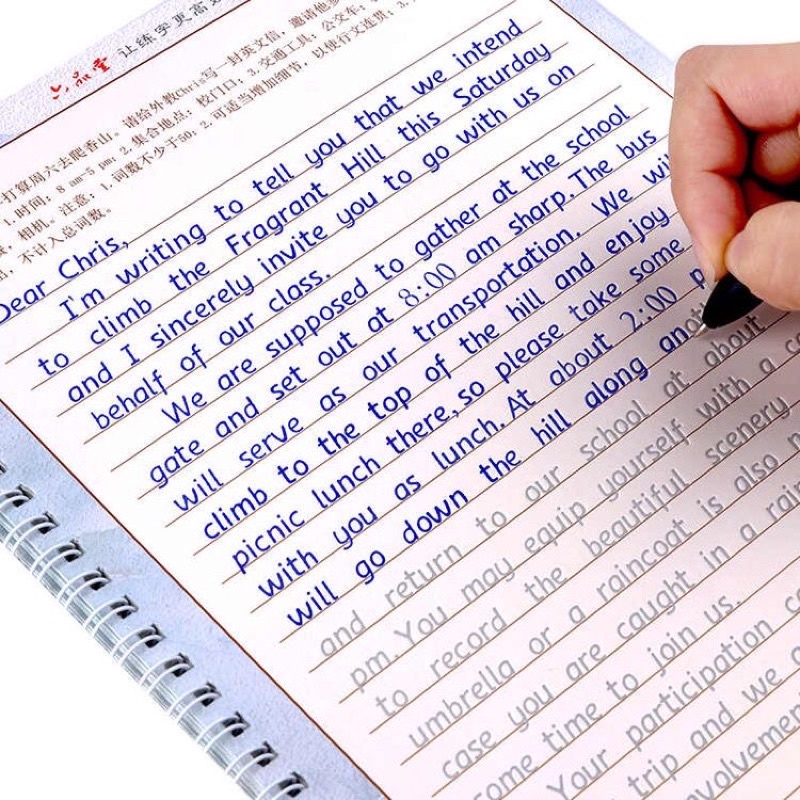 六品堂 让练字更高
打算周六去爬香山。请给外教Chris写一封英文信，邀请他
1.时间：8 am-5 pm；2.集合地点：校门口，3.交通工具：公交车；
相机。注意：1.词数不少于50；2.可适当增加细节，以使行文连贯；3.
不计入总词数。
Dear Chris,
I'm writing to tell you that we intend
to climb the Fragrant Hill this Saturday
and I sincerely invite you to go with us on
behalf of our class.
We are supposed to gather at the school
gate and set out at 8:00 am sharp. The bus
will serve as our transportation. We will
climb to the top of the hill and enjoy
picnic lunch there, so please take some
with you as lunch. At about 2:00 p
will go down the hill along another
and return to our school at about
pm. You may equip yourself with a
to record the beautiful scenery
umbrella or a raincoat is also
case you are caught in a rain
some time to join us.
Your participation
trip and we
involvement